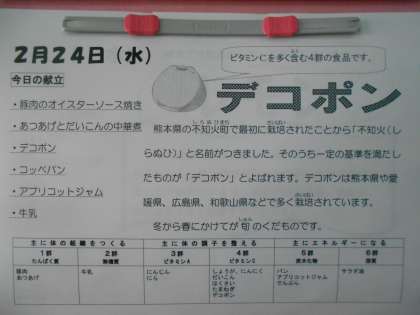 2月24日（水）
ビタミンCを多く含む4群の食品です。
今日の献立
デコポン
・豚肉のオイスターソース焼き
・あつあげとだいこんの中華煮
・デコポン
・コッペパン
・アプリコットジャム
・牛乳
熊本県の不知火町で最初に栽培されたことから「不知火（し
らぬひ）」と名前がつきました。そのうち一定の基準を満たし
たものが「デコポン」とよばれます。デコポンは熊本県や愛
媛県、広島県、和歌山県などで多く栽培されています。
冬から春にかけてが旬のくだものです。
主に体の組織をつくる 主に体の調子を整える 主にエネルギーになる
1群 2群 3群 4群 5群 6群
たんぱく質 無機質 ビタミンA ビタミンC 炭水化物 脂質
豚肉 牛乳 にんじん しょうが、にんにく パン サラダ油
あつあげ にら だいこん アプリコットジャム
はくさい でんぷん
たまねぎ
デコポン